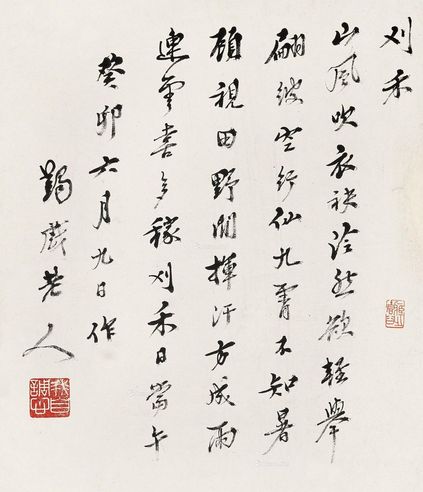 刈禾
山風吹衣袂泠然欲輕舉
翩彼空行仙九霄不知暑
顧視田野間揮汗方成雨
連雲喜多稼刈禾日當午
癸卯六月九日作
蠲戲老人